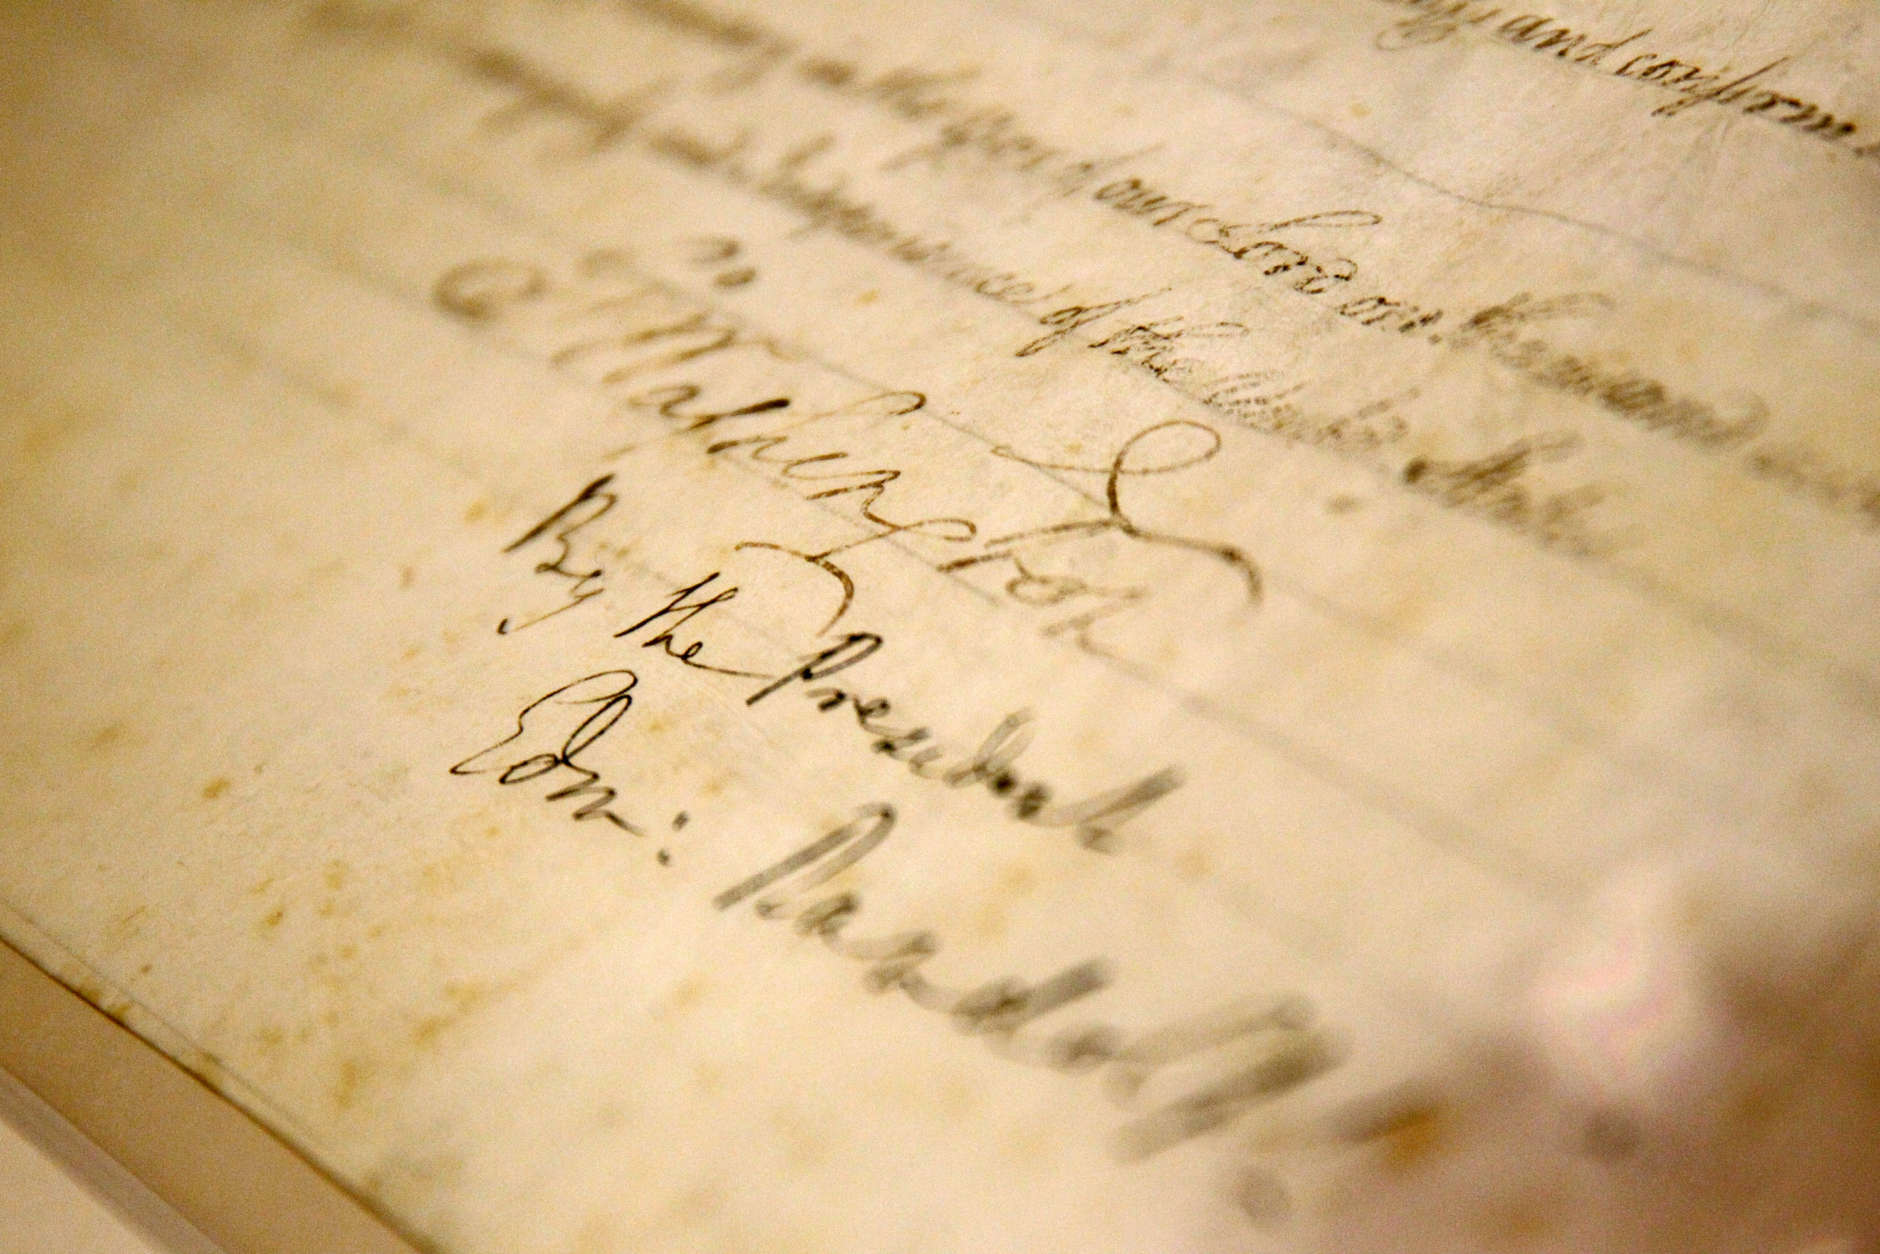 and confirm
in the year of our Lord one thousand
and Independence of the United States
Go Washington
By the President
Edm: Randolph